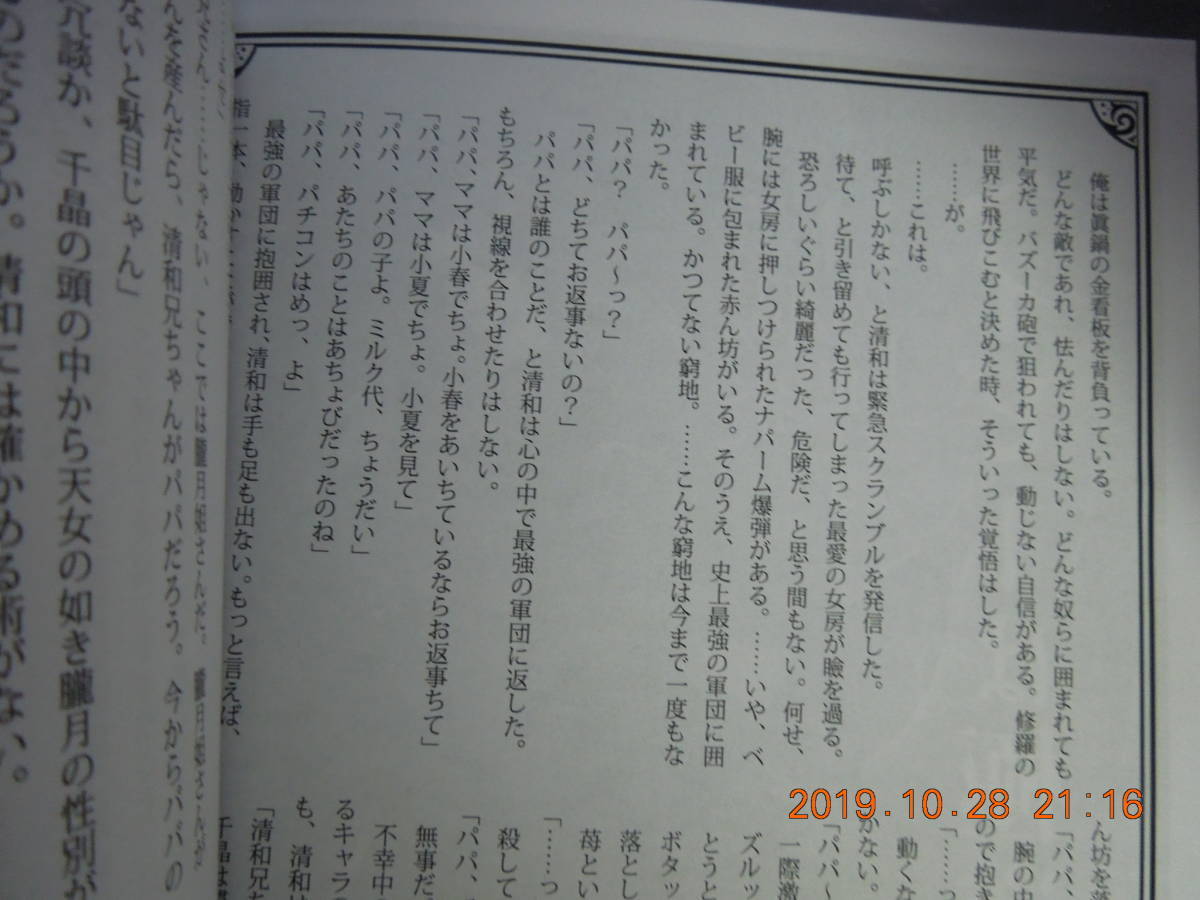 俺は眞鍋の金看板を背負っている。
どんな敵であれ、怯んだりはしない。どんな奴らに囲まれても
平気だ。バズーカ砲で狙われても、動じない自信がある。修羅の
世界に飛びこむと決めた時、そういった覚悟はした。
……が。
……これは。
呼ぶしかない、と清和は緊急スクランブルを発信した。
待て、と引き留めても行ってしまった最愛の女房が瞼を過る。
恐ろしいぐらい綺麗だった、危険だ、と思う間もない。何せ、
腕には女房に押しつけられたナパーム爆弾がある。……いや、ベ
ビー服に包まれた赤ん坊がいる。そのうえ、史上最強の軍団に囲
まれている。かつてない窮地。……こんな窮地は今まで一度もな
かった。
「パパ? パパ～っ?」
「パパ、どちてお返事ないの?」
パパとは誰のことだ、と清和は心の中で最強の軍団に返した。
もちろん、視線を合わせたりはしない。
「パパ、ママは小春でちょ。小春をあいちているならお返事ちて」
「パパ、ママは小夏でちょ。小夏を見て」
「パパ、パパの子よ。ミルク代、ちょうだい」
「パパ、あたちのことはあちょびだったのね」
「パパ、パチコンはめっ、よ」
最強の軍団に抱囲され、清和は手も足も出ない。もっと言えば、
指一本、動かすことが
ん坊を落
「パパ、
腕の中
ので抱き
「……っ
動くな
かない。
「パパ～
一際激
ズルッ
とうと
ボタッ
落とし
苺とい
「……っ
殺して
「パパ、
無事だ
不幸中
るキャラ
も、清和は
「清和兄ち
千晶は
んを産んだら、清和兄ちゃんがパパだろう。今からパパの
ないと駄目じゃん」
冗談か、千晶の頭の中から天女の如き朧月の性別が
のだろうか。清和には確かめる術がない。
2019.10.28 21:16